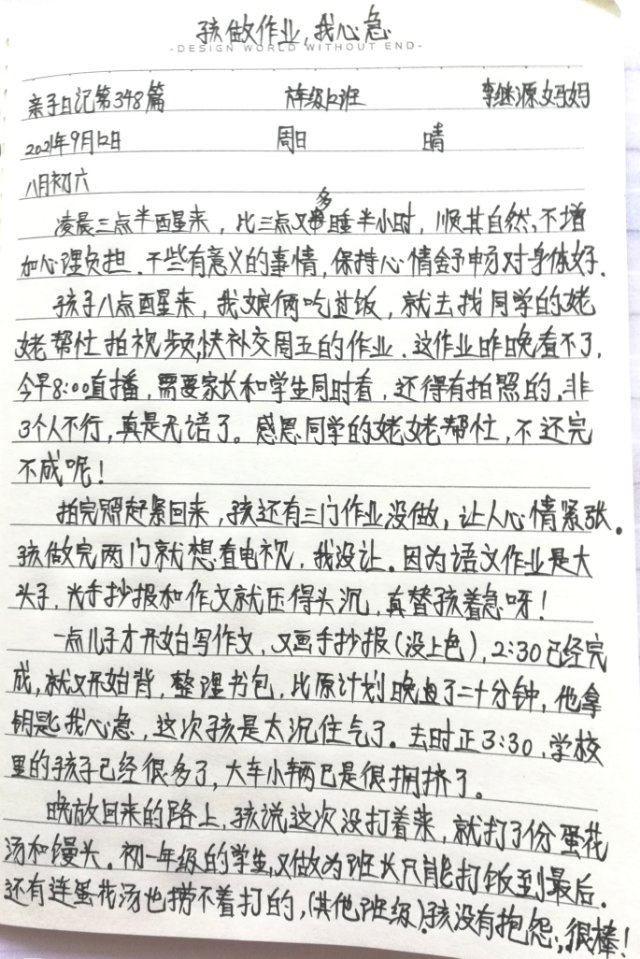 孩做作业,我心急
-DESIGN WORLD WITHOUT END-
亲子日记第348篇 六年级12班 李继源妈妈
2021年9月12日 周日 晴
八月初六
凌晨三点半醒来,比三点又多睡半小时,顺其自然,不增
加心理负担.干些有意义的事情,保持心情舒畅对身体好.
孩子八点醒来,我娘俩吃过饭,就去找同学的姥
姥帮忙拍视频,快补交周五的作业.这作业昨晚看不了,
今早8:00直播,需要家长和学生同时看,还得有拍照的,非
3个人不行,真是无语了。感恩同学的姥姥帮忙,不还完
不成呢!
拍完照赶紧回来,孩还有三门作业没做,让人心情紧张。
孩做完两门就想看电视,我没让.因为语文作业是大
头子,光手抄报和作文就压得头沉,真替孩着急呀!
一点儿子才开始写作文,又画手抄报(没上色),2:30已经完
成,就又开始背,整理书包,比原计划晚了二十分钟,他拿
钥匙我心急,这次孩是太沉住气了.去时正3:30,学校
里的孩子已经很多了,大车小辆已是很拥挤了。
晚放回来的路上,孩说这次没打着菜,就打了份蛋花
汤和馒头.初一年级的学生,又做为班长只能打饭到最后.
还有连蛋花汤也捞不着打的,(其他班级).孩没有抱怨,很棒!